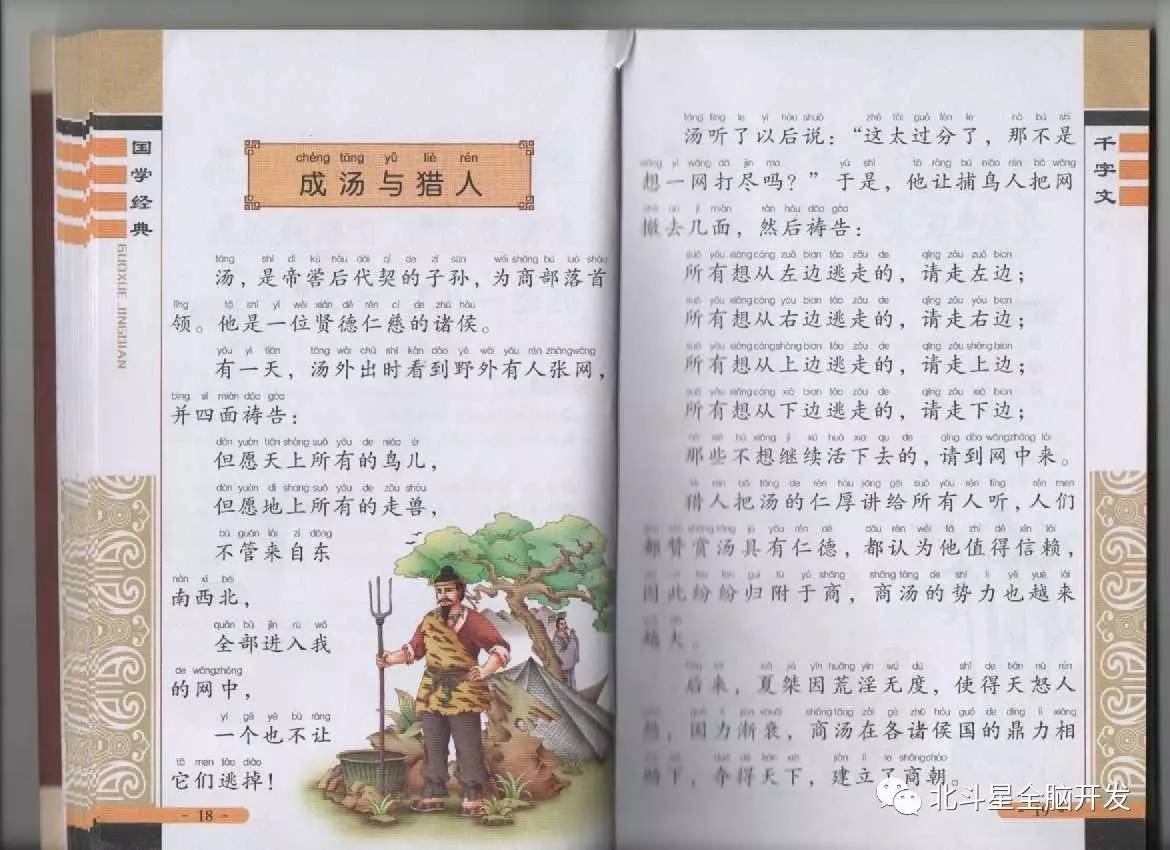 国学经典
GUOXUE JINGDIAN
chéng tāng yǔ liè rén
成汤与猎人
tāng shì dì kù hòu dài qì de zǐ sūn wéi shāng bù luò shǒu
汤，是帝喾后代契的子孙，为商部落首
lǐng tā shì yí wèi xián dé rén cí de zhū hóu
领。他是一位贤德仁慈的诸侯。
yǒu yì tiān tāng wài chū shí kàn dào yě wài yǒu rén zhāng wǎng
有一天，汤外出时看到野外有人张网，
bìng sì miàn dǎo gào
并四面祷告：
dàn yuàn tiān shàng suǒ yǒu de niǎo ér
但愿天上所有的鸟儿，
dàn yuàn dì shang suǒ yǒu de zǒu shòu
但愿地上所有的走兽，
bù guǎn lái zì dōng
不管来自东
nán xī běi
南西北，
quán bù jìn rù wǒ
全部进入我
de wǎng zhōng
的网中，
yí gè yě bú ràng
一个也不让
tā men táo diào
它们逃掉！
- 18 -
千字文
tāng tīng le yǐ hòu shuō zhè tài guò fèn le nà bú shì
汤听了以后说：“这太过分了，那不是
xiǎng yì wǎng dǎ jìn ma yú shì tā ràng bǔ niǎo rén bǎ wǎng
想一网打尽吗？”于是，他让捕鸟人把网
chè qù jǐ miàn rán hòu dǎo gào
撤去几面，然后祷告：
suǒ yǒu xiǎng cóng zuǒ bian táo zǒu de qǐng zǒu zuǒ bian
所有想从左边逃走的，请走左边；
suǒ yǒu xiǎng cóng yòu bian táo zǒu de qǐng zǒu yòu bian
所有想从右边逃走的，请走右边；
suǒ yǒu xiǎng cóng shàng bian táo zǒu de qǐng zǒu shàng bian
所有想从上边逃走的，请走上边；
suǒ yǒu xiǎng cóng xià bian táo zǒu de qǐng zǒu xià bian
所有想从下边逃走的，请走下边；
nà xiē bù xiǎng jì xù huó xia qu de qǐng dào wǎng zhōng lái
那些不想继续活下去的，请到网中来。
liè rén bǎ tāng de rén hòu jiǎng gěi suǒ yǒu rén tīng rén men
猎人把汤的仁厚讲给所有人听，人们
dōu zàn shǎng tāng jù yǒu rén dé dōu rèn wéi tā zhí dé xìn lài
都赞赏汤具有仁德，都认为他值得信赖，
yīn cǐ fēn fēn guī fù yú shāng shāng tāng de shì lì yě yuè lái
因此纷纷归附于商，商汤的势力也越来
越大。
hòu lái xià jié yīn huāng yín wú dù shǐ de tiān nù rén
后来，夏桀因荒淫无度，使得天怒人
怨，国力渐衰，商汤在各诸侯国的鼎力相
助下，夺得天下，建立了商朝。
北斗星全脑开发